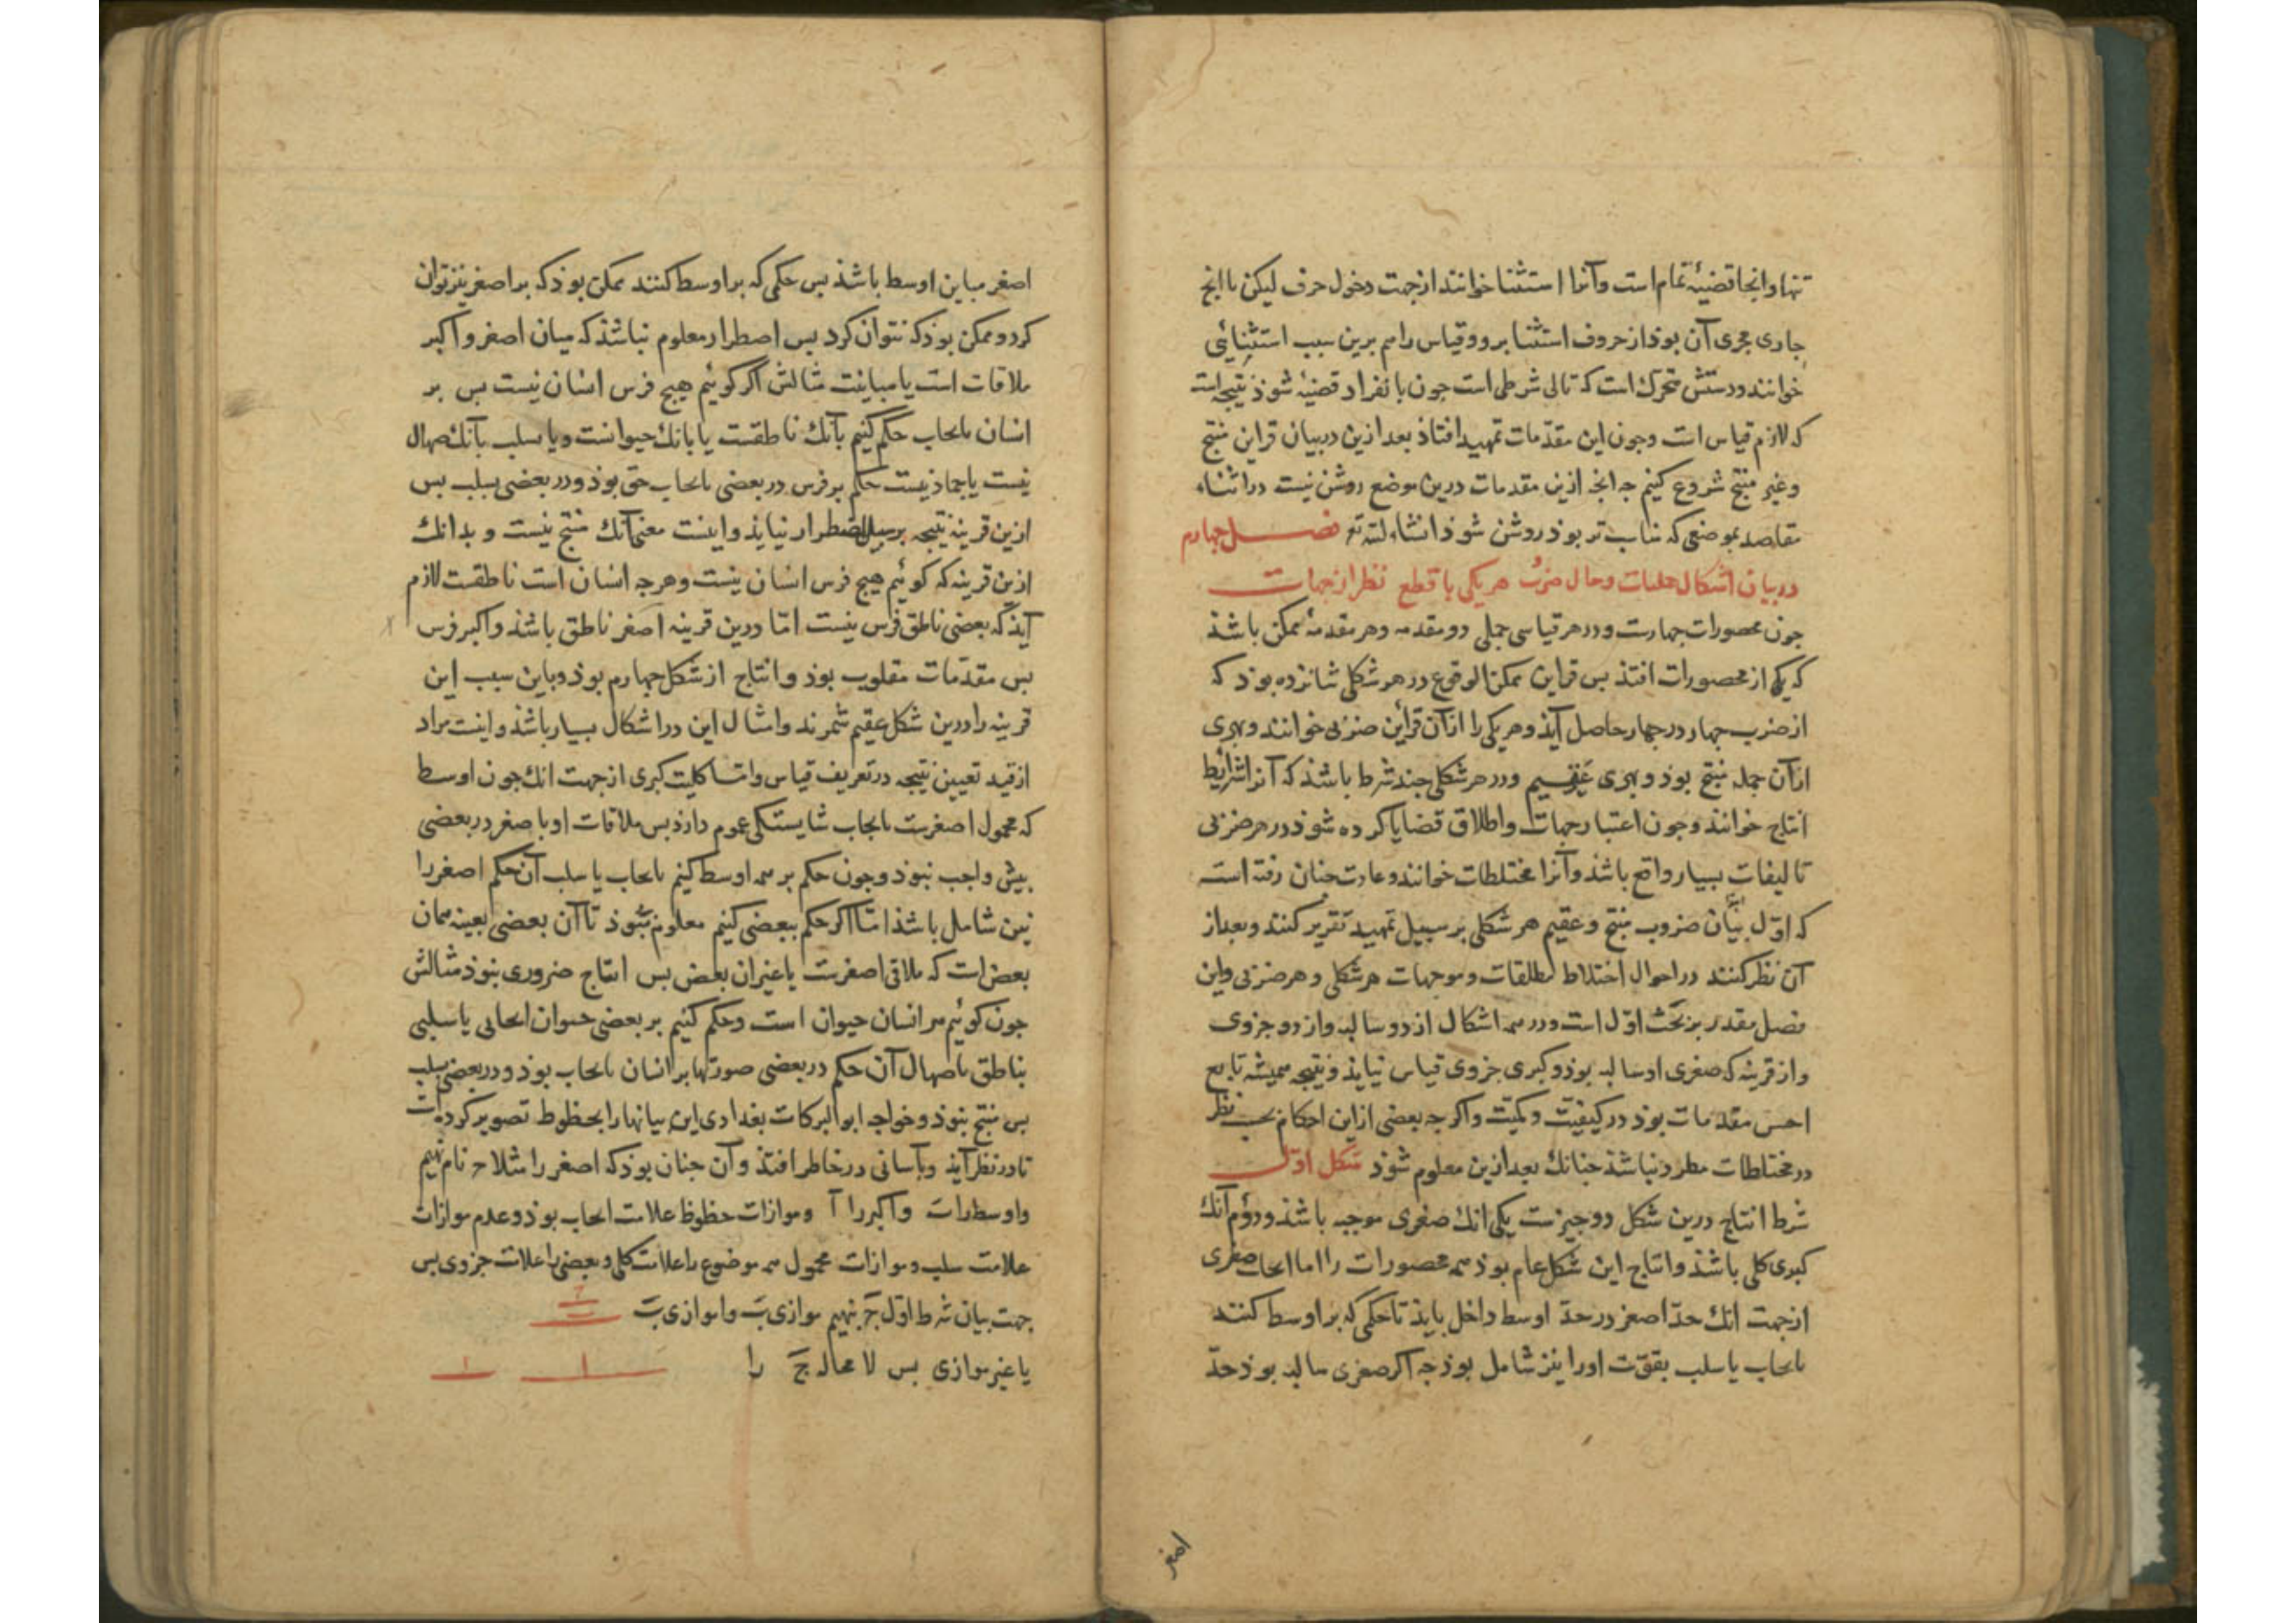 تنها و اینجا قضیهٔ تمام است و آنرا استثنا خوانند از جهت دخول حرف لیکن یا آنچ
جاری مجری آن بوذ از حروف استثنا برو و قیاس را هم برین سبب استثنائی
خوانند و رستش متحرک است که تالی شرطی است جون بانفراد قضیهٔ شوذ نتیجه است
که لازم قیاس است و جون این مقدّمات تمهید افتاذ بعد ازین در بیان قراین منتج
و غیر منتج شروع کنیم جه انجه ازین مقدمات درین موضع روشن نیست در اثناء
مقاصد بموضعی که مناسب تر بوذ روشن شوذ انشاء لله تع فصل چهارم
در بیان اشکال حملیات و حال ضرب هر یکی با قطع نظر از جهات
جون محصورات جهارست و در هر قیاسی حملی دو مقدمه و هر مقدمهٔ ممکن باشذ
که یکی از محصورات افتذ بس قراین ممکن الوقوع در هر شکلی شانزده بوذ که
از ضرب جهار در جهار حاصل آیذ و هر یکی را از آن قراین ضربی خوانند و بهری
از آن جمله منتج بوذ و بهری عقیم و در هر شکلی جند شرط باشذ که آنرا شرایط
انتاج خوانند و جون اعتبار جهات و اطلاق قضایا کرده شوذ در هر ضربی
تالیفات بسیار واقع باشذ و آنرا مختلطات خوانند و عادت جنان رفته است
که اوّل بیان ضروب منتج و عقیم هر شکلی بر سبیل تمهید تقریر کنند و بعد از
آن نظر کنند در احوال اختلاط مطلقات و موجهات هر شکلی و هر ضربی و این
فصل مقدر بر بحث اوّل است و در همه اشکال از دو سالبه و از دو جزوی
و از قرینه که صغری او سالبه بوذ و کبری جزوی قیاس نیایذ و نتیجه همیشه تابع
احسن مقدمات بوذ در کیفیّت و کمیّت و اکر جه بعضی از این احکام بحسب نظر
در مختلطات مطرد نباشذ جنانک بعد ازین معلوم شوذ شکل اوّل
شرط انتاج درین شکل دو جیزست یکی انک صغری موجبه باشذ و دوّم آنک
کبری کلی باشذ و انتاج این شکل عام بوذ همه محصورات را اما ایجاب صغری
از جهت انک حدّ اصغر در حدّ اوسط داخل بایذ تا حکمی که بر اوسط کنند
بایجاب یا سلب بقوّت او را نیز شامل بوذ جه اکر صغری سالبه بوذ حدّ
اصغر
اصغر مباین اوسط باشذ بس حکمی که بر اوسط کنند ممکن بوذ که بر اصغر نیز توان
کرد و ممکن بوذ که نتوان کرد بس اضطرار معلوم نباشذ که میان اصغر و اکبر
ملاقات است یا مباینت مثالش اکر کوئیم هیج فرس انسان نیست بس بر
انسان بایجاب حکم کنیم بآنک ناطقست یا بانک حیوانست و یا بسلب بآنک صهال
نیست یا جماذ نیست حکم بر فرس در بعضی بایجاب حق بوذ و در بعضی بسلب بس
ازین قرینه نتیجه بر سبیل اضطرار نیایذ و اینست معنی آنک منتج نیست و بدانک
ازین قرینه که کوئیم هیج فرس انسان نیست و هر جه انسان است ناطقست لازم
آیذ که بعضی ناطق فرس نیست امّا درین قرینه اصغر ناطق باشذ و اکبر فرس
بس مقدّمات مقلوب بوذ و انتاج از شکل جهارم بوذ و باین سبب این
قرینه را درین شکل عقیم شمرند و امثال این در اشکال بسیار باشذ و اینست مراد
از قید تعیین نتیجه در تعریف قیاس و امّا کلیت کبری از جهت انک جون اوسط
که محمول اصغرست بایجاب شایستکی عموم دارذ بس ملاقات او با صغر در بعضی
بیش واجب نبوذ و جون حکم بر همه اوسط کنیم بایجاب یا سلب آن حکم اصغر را
نیز شامل باشذ امّا اکر حکم ببعضی کنیم معلوم نبوذ تا آن بعضی بعینه همان
بعض است که ملاقی اصغرست یا غیر ان بعض بس انتاج ضروری نبوذ مثالش
جون کوئیم هر انسان حیوان است و حکم کنیم بر بعضی حیوان ایجابی یا سلبی
بناطق یا صهال آن حکم در بعضی صورتها بر انسان بایجاب بوذ و در بعضی بسلب
بس منتج نبوذ و خواجه ابو البرکات بغدادی این بیانها را بخطوط تصویر کرده است
تا در نظر آیذ و بآسانی در خاطر افتذ و آن جنان بوذ که اصغر را مثلا ج نام نهیم
و اوسط را ب و اکبر را آ و موازات خطوط علامت ایجاب بوذ و عدم موازات
علامت سلب و موازات محمول همه موضوع را علامت کلی و بعضی را علامت جزوی بس
جهت بیان شرط اوّل ج بنهیم موازی ب و ا موازی ب
یا غیر موازی بس لا محاله ج را